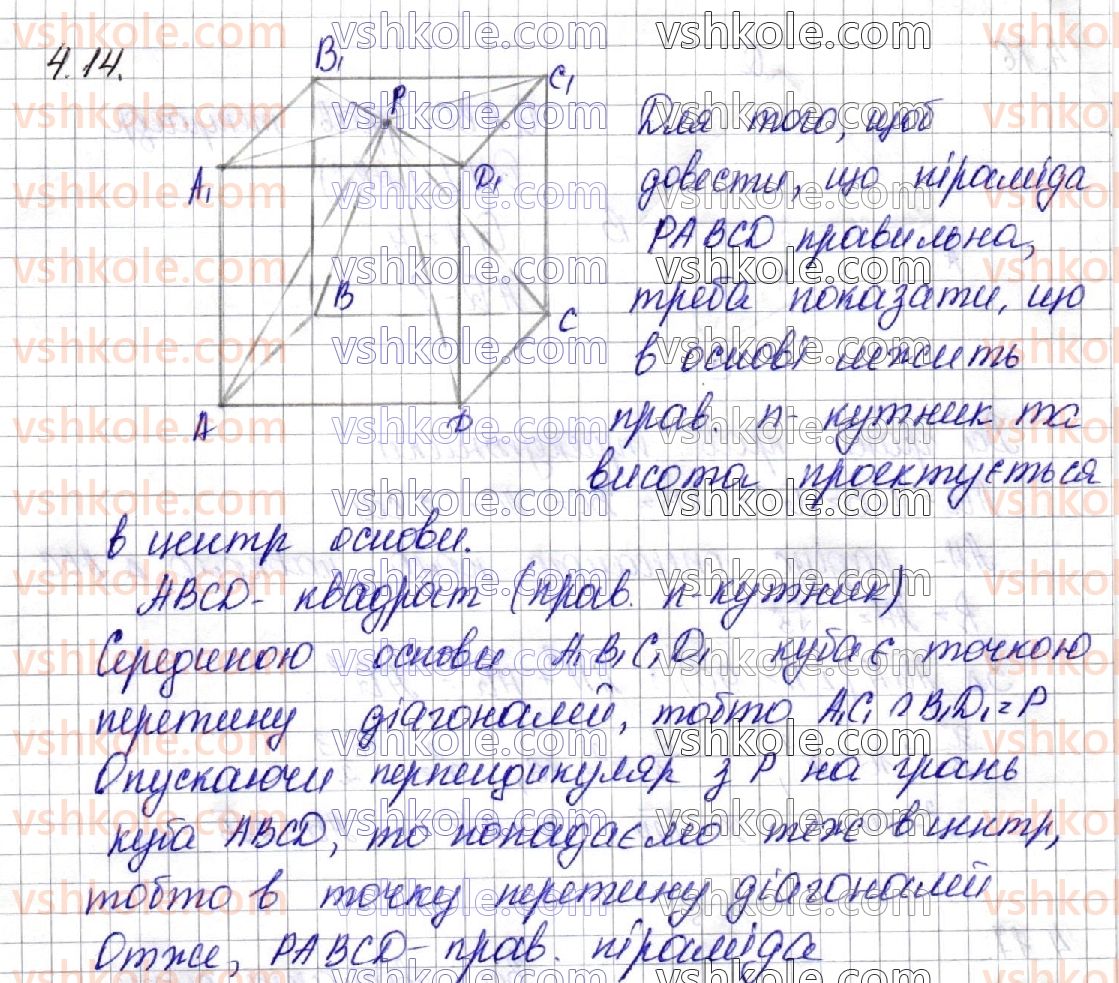 4.14.
B₁
C₁
P
A₁
D₁
B
C
A
D
Для того, щоб
довести, що піраміда
PABCD правильна,
треба показати, що
в основі лежить
прав. n-кутник та
висота проектується
в центр основи.
ABCD - квадрат (прав. n-кутник)
Серединою основи A₁B₁C₁D₁ куба є точкою
перетину діагоналей, тобто A₁C₁ ∩ B₁D₁ = P
Опускаючи перпендикуляр з P на грань
куба ABCD, то попадаємо теж в центр,
тобто в точку перетину діагоналей
Отже, PABCD - прав. піраміда
vshkole.com